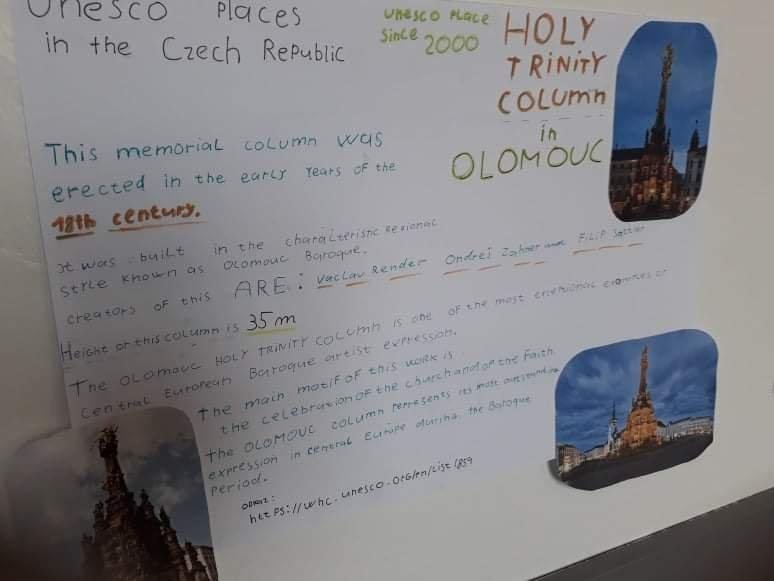 Unesco Places
in the Czech Republic
unesco place
since 2000
HOLY
TRINITY
COLUMN
in
OLOMOUC
This memorial column was
erected in the early years of the
18th century.
It was built in the characteristic Regional
style known as Olomouc Baroque.
creators of this ARE: Vaclav Render Ondrej Zahner and Filip Sattler
Height of this column is 35m
The Olomouc HOLY TRINITY COLUMN is one of the most exceptional examples of
Central European Baroque artist expression.
The main motif of this work is
the celebration of the church and of the Faith.
the OLOMOUC column represents its most outstanding
expression in central Europe during the Baroque
Period.
https://whc.unesco.org/en/list/859